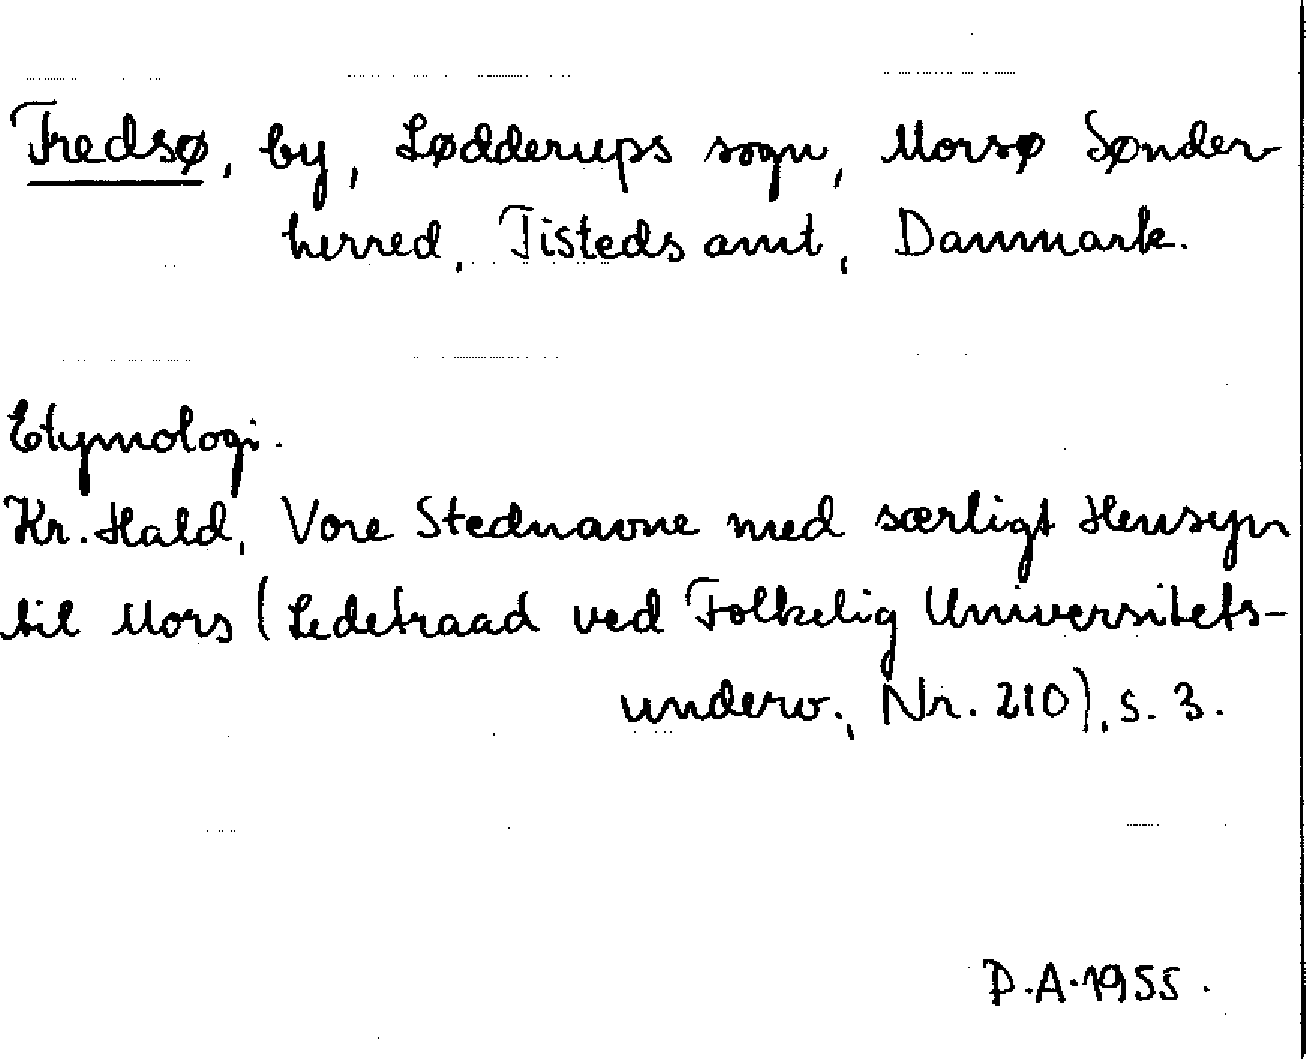 Fredsø, by, Lødderups sogn, Morsø Sønder
herred, Tisteds amt, Danmark.
Etymologi.
Kr. Hald, Vore Stednavne med særligt Hensyn
til Mors (Ledetraad ved Folkelig Universitets-
underv., Nr. 210), s. 3.
P.A. 1955.